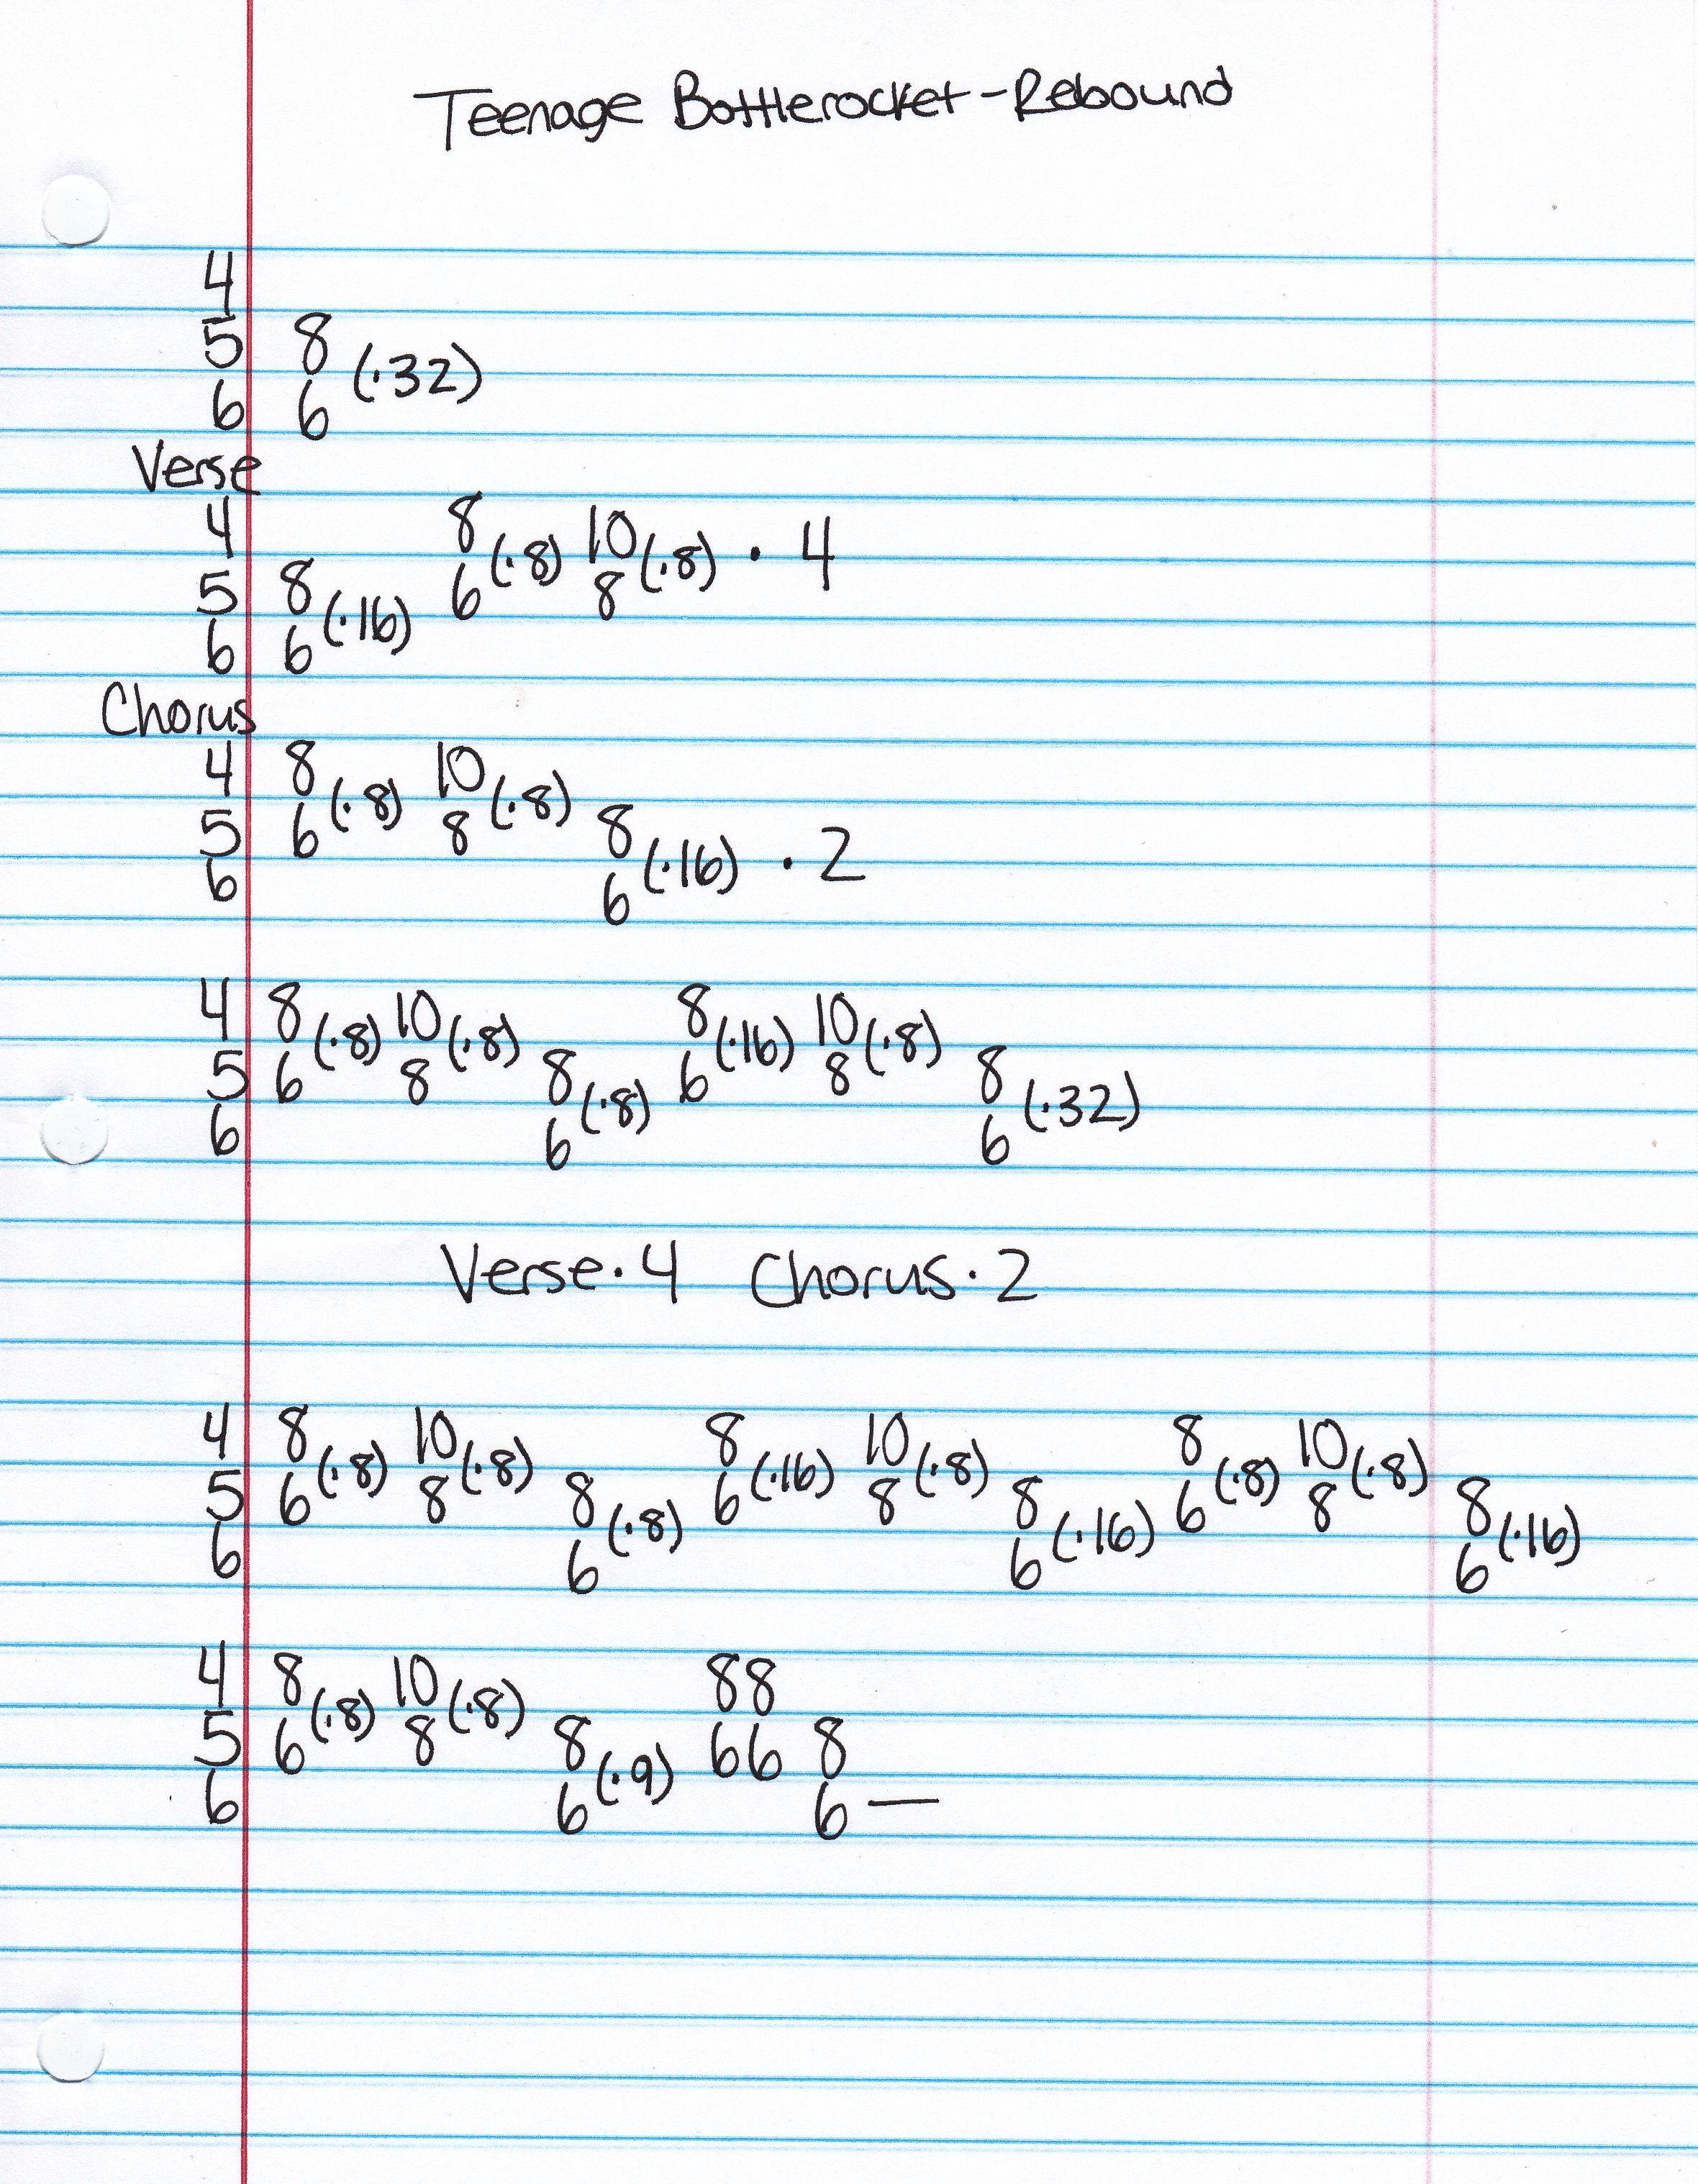 Teenage Bottlerocket-Rebound
4
5 8 (·32)
6 6
Verse
4 8 (·8) 10 (·8) · 4
5 8 (·16) 6 8
6 6
Chorus
4 8 (·8) 10 (·8)
5 6 8 8 (·16) · 2
6 6
4 8 (·8) 10 (·8) 8 (·16) 10 (·8)
5 6 8 8 (·8) 6 8 8 (·32)
6 6 6
Verse·4 Chorus·2
4 8 (·8) 10 (·8) 8 (·16) 10 (·8) 8 (·8) 10 (·8)
5 6 8 8 (·8) 6 8 8 (·16) 6 8 8 (·16)
6 6 6 6
4 8 (·8) 10 (·8) 88
5 6 8 8 (·9) 66 8
6 6 6 —